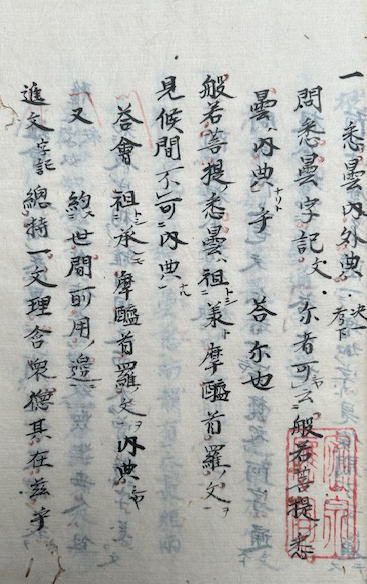 一 悉曇内外典
問悉曇字記文 尓者可云般若菩提悉
曇内典ナリト乎 答尓也
般若菩提悉曇祖トシ摩醯首羅文ヲ
見候間不可内典
答會 祖トシ承摩醯首羅文ヲ内典
又 約世間所用邊
進文 字記 總持一文理含衆德其在茲乎